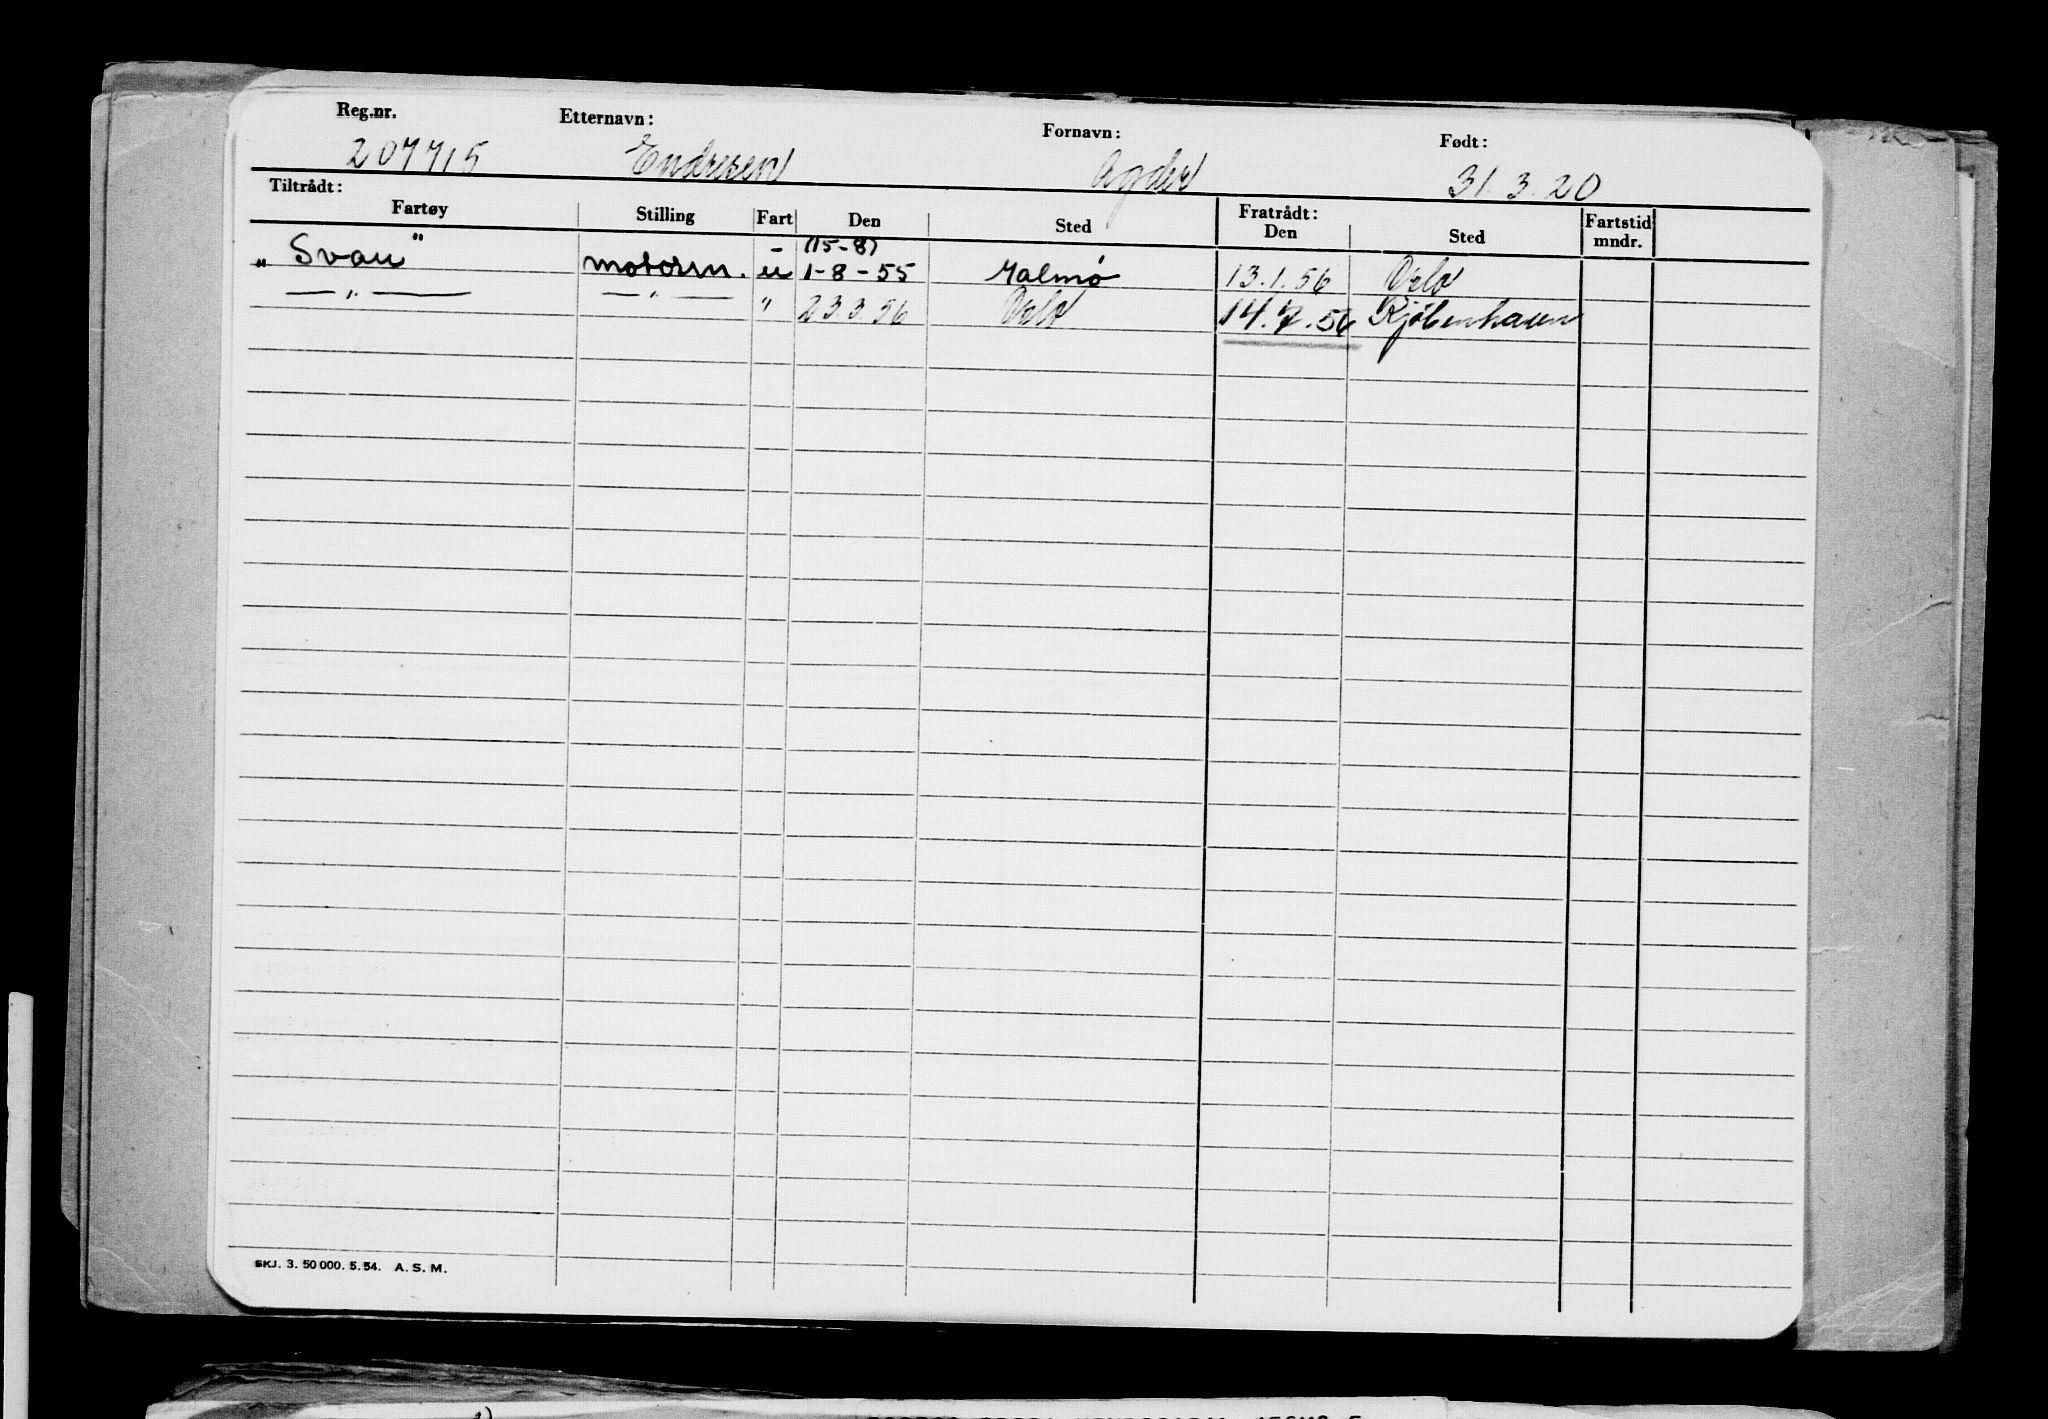 Reg.nr. Etternavn: Fornavn: Født:
207715 Endresen Agder 31.3.20
Tiltrådt: Fratrådt:
Fartøy Stilling Fart Den Sted Den Sted Fartstid mndr.
(15-8)
„Svan" motorm. u 1-8-55 Malmø 13.1.56 Oslo
—"— —"— " 23 3.56 Oslo 14.7.56 Kjøbenhavn
SKJ. 3. 50 000. 5. 54. A. S. M.